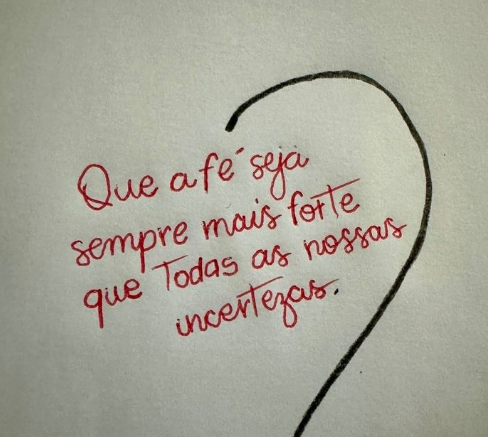 Que a fé seja
sempre mais forte
que Todas as nossas
incertezas.